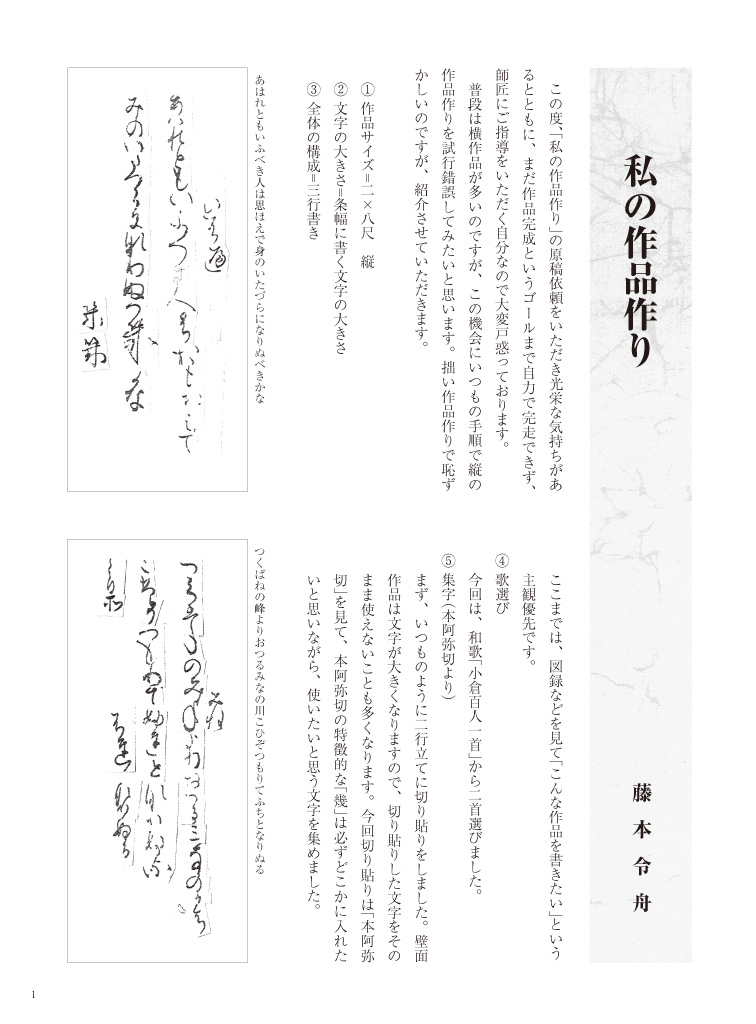 私の作品作り
藤本令舟
この度、「私の作品作り」の原稿依頼をいただき光栄な気持ちがあ
るとともに、まだ作品完成というゴールまで自力で完走できず、
師匠にご指導をいただく自分なので大変戸惑っております。
普段は横作品が多いのですが、この機会にいつもの手順で縦の
作品作りを試行錯誤してみたいと思います。拙い作品作りで恥ず
かしいのですが、紹介させていただきます。
① 作品サイズ＝二×八尺 縦
② 文字の大きさ＝条幅に書く文字の大きさ
③ 全体の構成＝三行書き
あはれともいふべき人は思ほえで身のいたづらになりぬべきかな
ここまでは、図録などを見て「こんな作品を書きたい」という
主観優先です。
④ 歌選び
今回は、和歌「小倉百人一首」から二首選びました。
⑤ 集字（本阿弥切より）
まず、いつものように二行立てに切り貼りをしました。壁面
作品は文字が大きくなりますので、切り貼りした文字をその
まま使えないことも多くなります。今回切り貼りは「本阿弥
切」を見て、本阿弥切の特徴的な「幾」は必ずどこかに入れた
いと思いながら、使いたいと思う文字を集めました。
つくばねの峰よりおつるみなの川こひぞつもりてふちとなりぬる
1